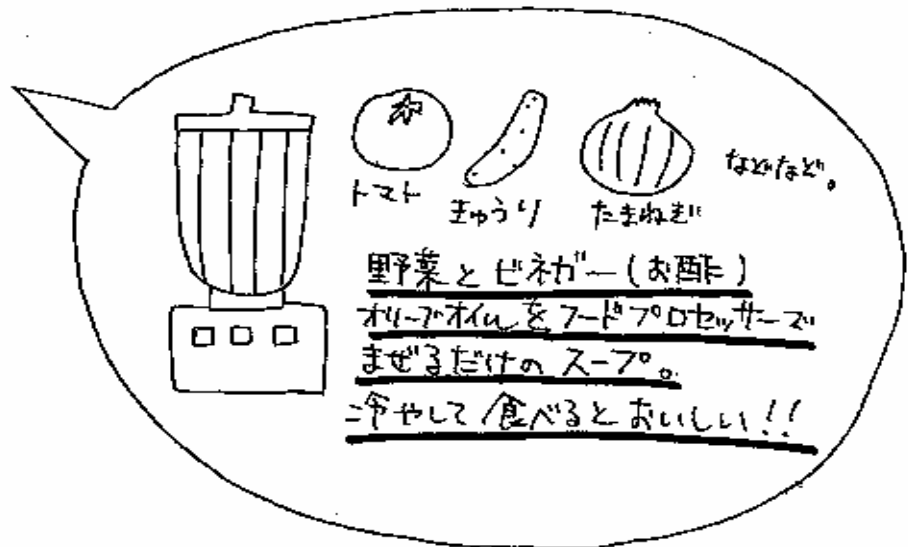 トマト
きゅうり
たまねぎ
などなど。
野菜とビネガー(お酢)
オリーブオイルをフードプロセッサーで
まぜるだけのスープ。
冷やして食べるとおいしい!!